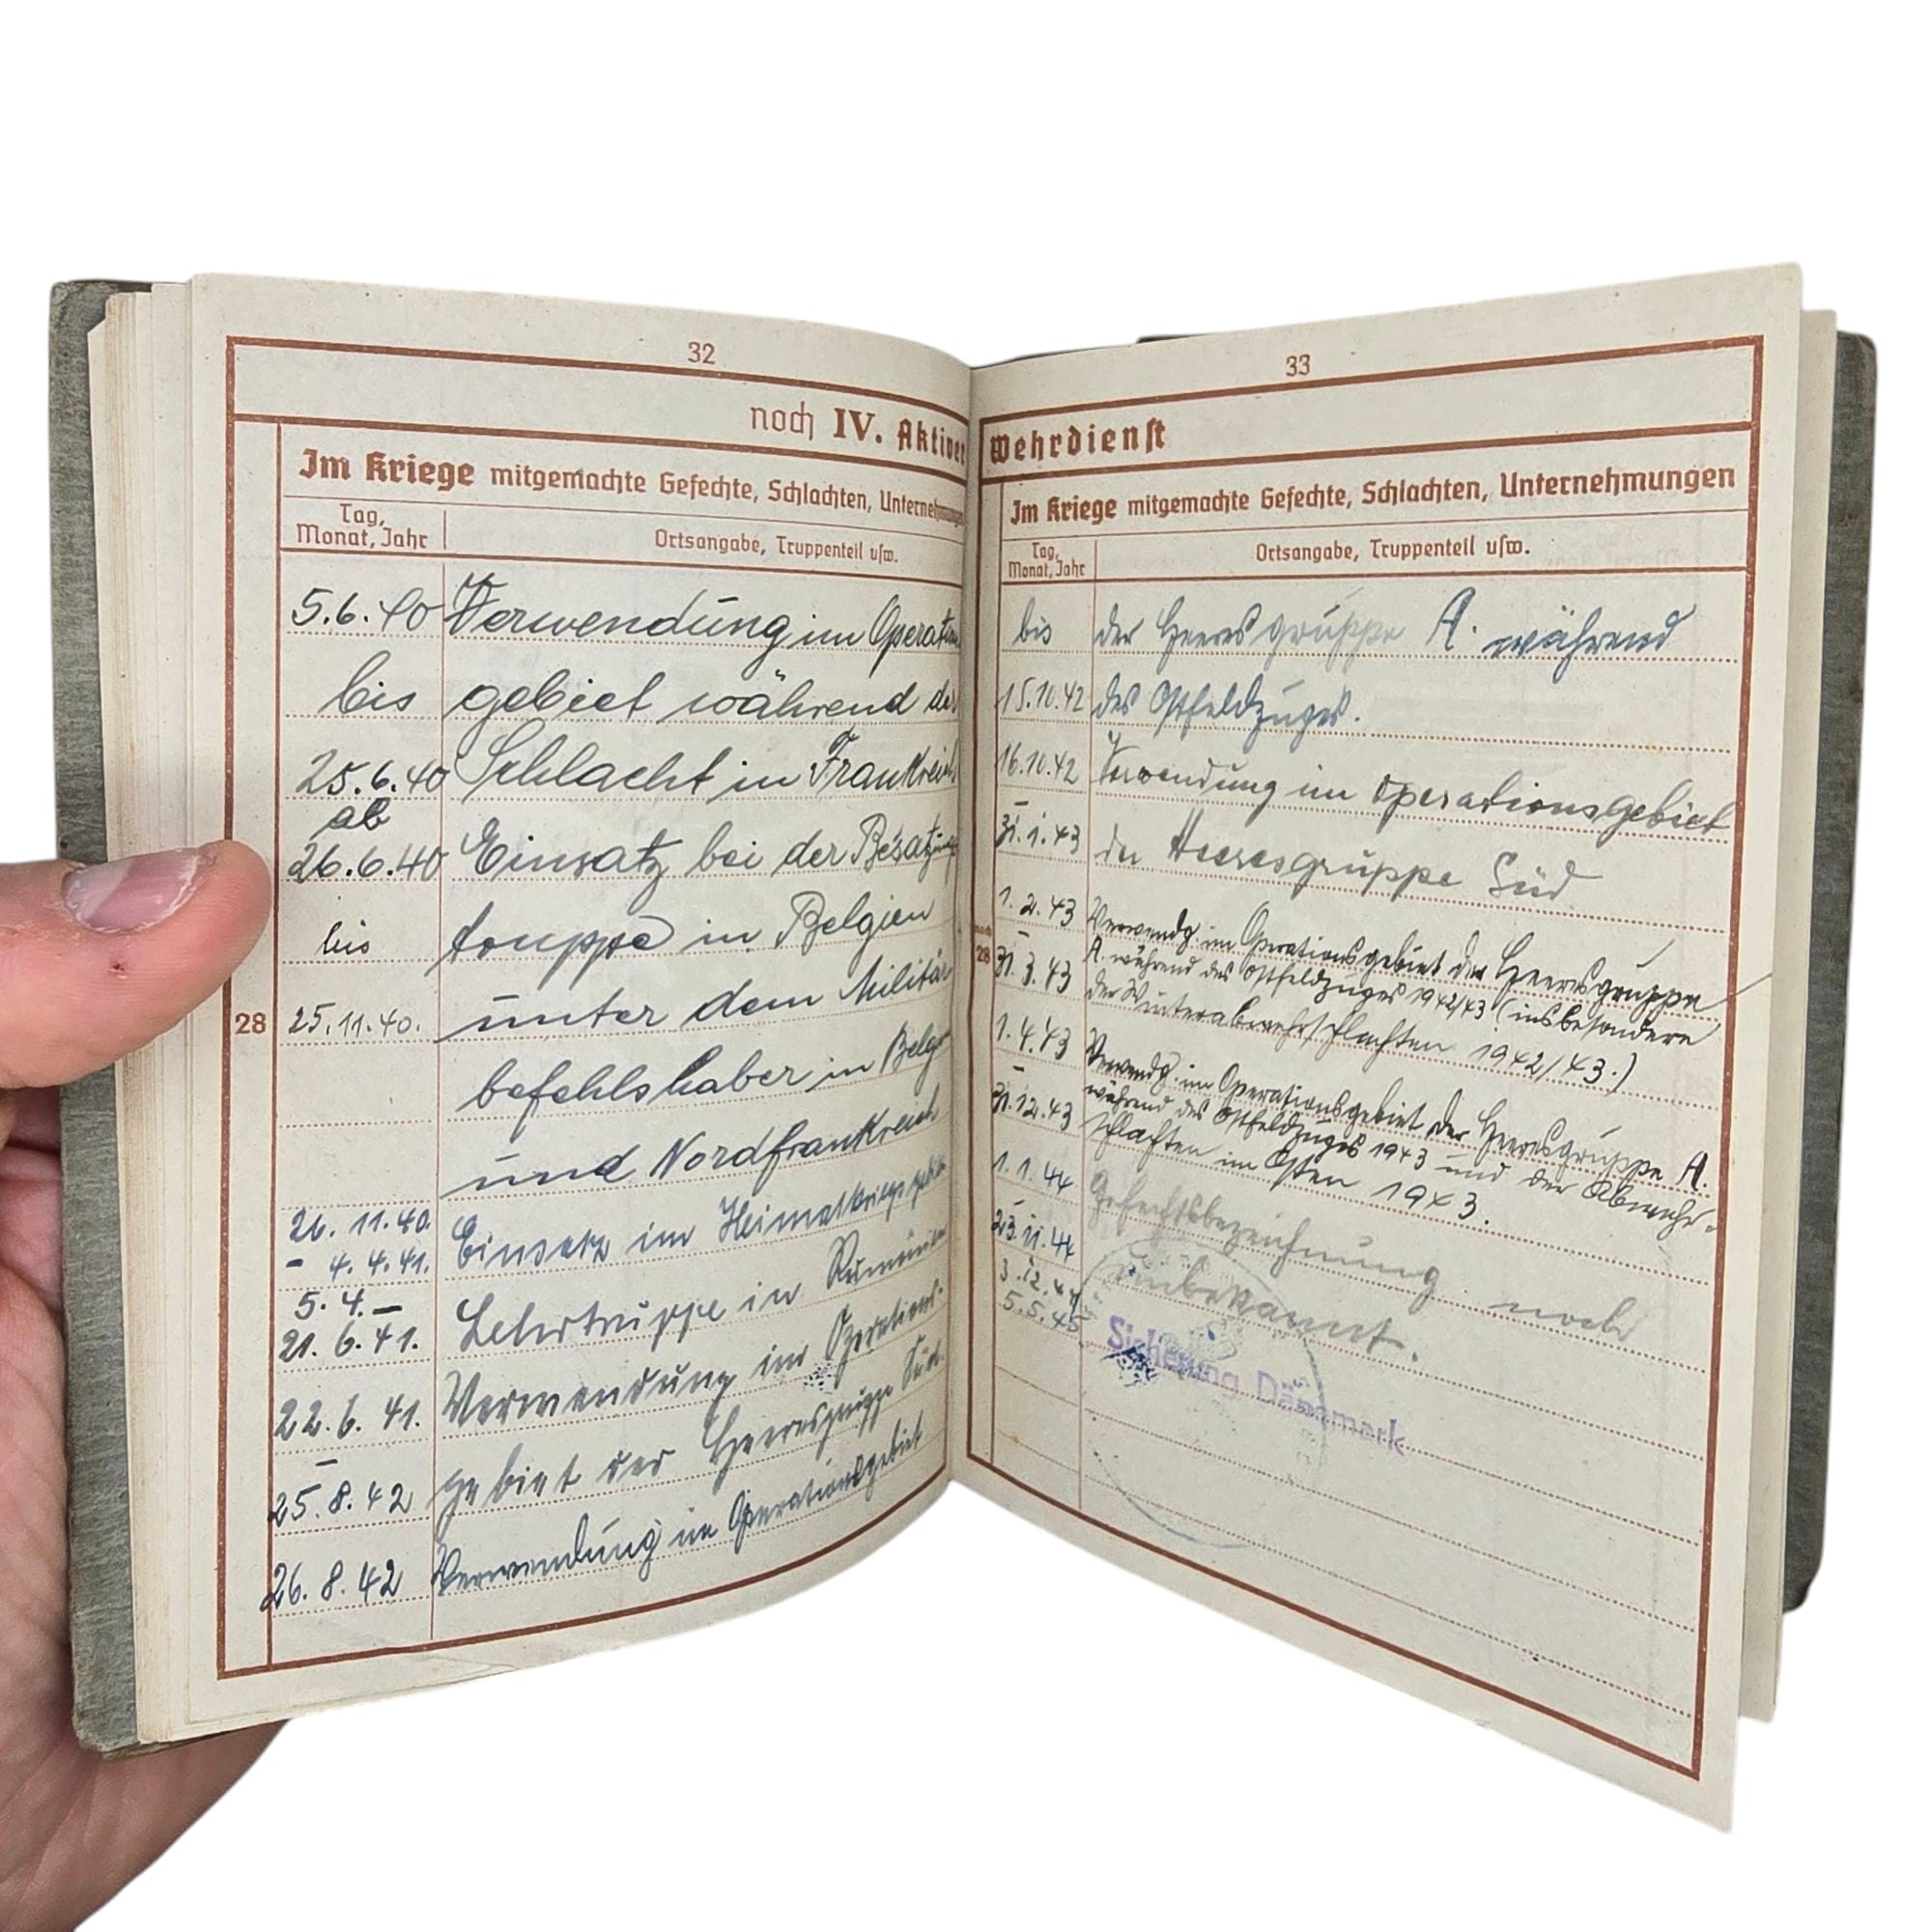 32
noch IV. Aktiver
Im Kriege mitgemachte Gefechte, Schlachten, Unternehmungen
Tag,
Monat, Jahr
Ortsangabe, Truppenteil usw.
5.6.40 Verwendung im Operations
bis gebiet während der
25.6.40 Schlacht in Frankreich
ab
26.6.40 Einsatz bei der Besatzungs
bis truppe in Belgien
28
25.11.40. unter dem Militär
befehlshaber in Belgien
und Nordfrankreich
26.11.40. Einsatz im Heimatkriegsgebiet
- 4.4.41.
5.4. – Lehrtruppe in Rumänien
21.6.41.
22.6.41. Verwendung im Operations-
–
25.8.42 gebiet der Heeresgruppe Süd.
26.8.42 Verwendung im Operationsgebiet
33
Wehrdienst
Im Kriege mitgemachte Gefechte, Schlachten, Unternehmungen
Tag,
Monat, Jahr
Ortsangabe, Truppenteil usw.
bis der Heeresgruppe A. während
15.10.42 des Ostfeldzuges.
16.10.42 Verwendung im Operationsgebiet
–
31.1.43 der Heeresgruppe Süd
1.2.43 Verwendg. im Operationsgebiet der Heeresgruppe
– A. während des Ostfeldzuges 1942/43 (insbesondere
noch
28
31.3.43 der Winterabwehrschlachten 1942/43.)
1.4.43 Verwendg. im Operationsgebiet der Heeresgruppe A.
– während des Ostfeldzuges 1943 und der Abwehr-
31.12.43 schlachten im Osten 1943.
1.1.44 Gefechtsbezeichnung noch
–
23.11.44 unbekannt.
3.12.44
5.5.45 Sicherung Dänemark